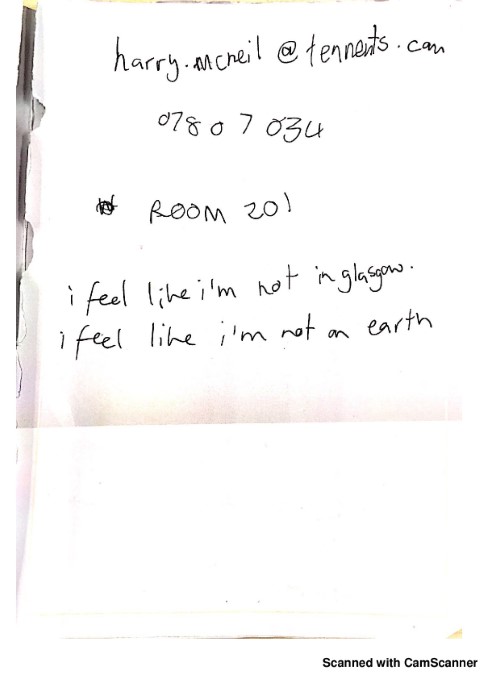 harry.mcneil@tennents.com
07807034
ROOM 201
i feel like i'm not in glasgow.
i feel like i'm not on earth
Scanned with CamScanner